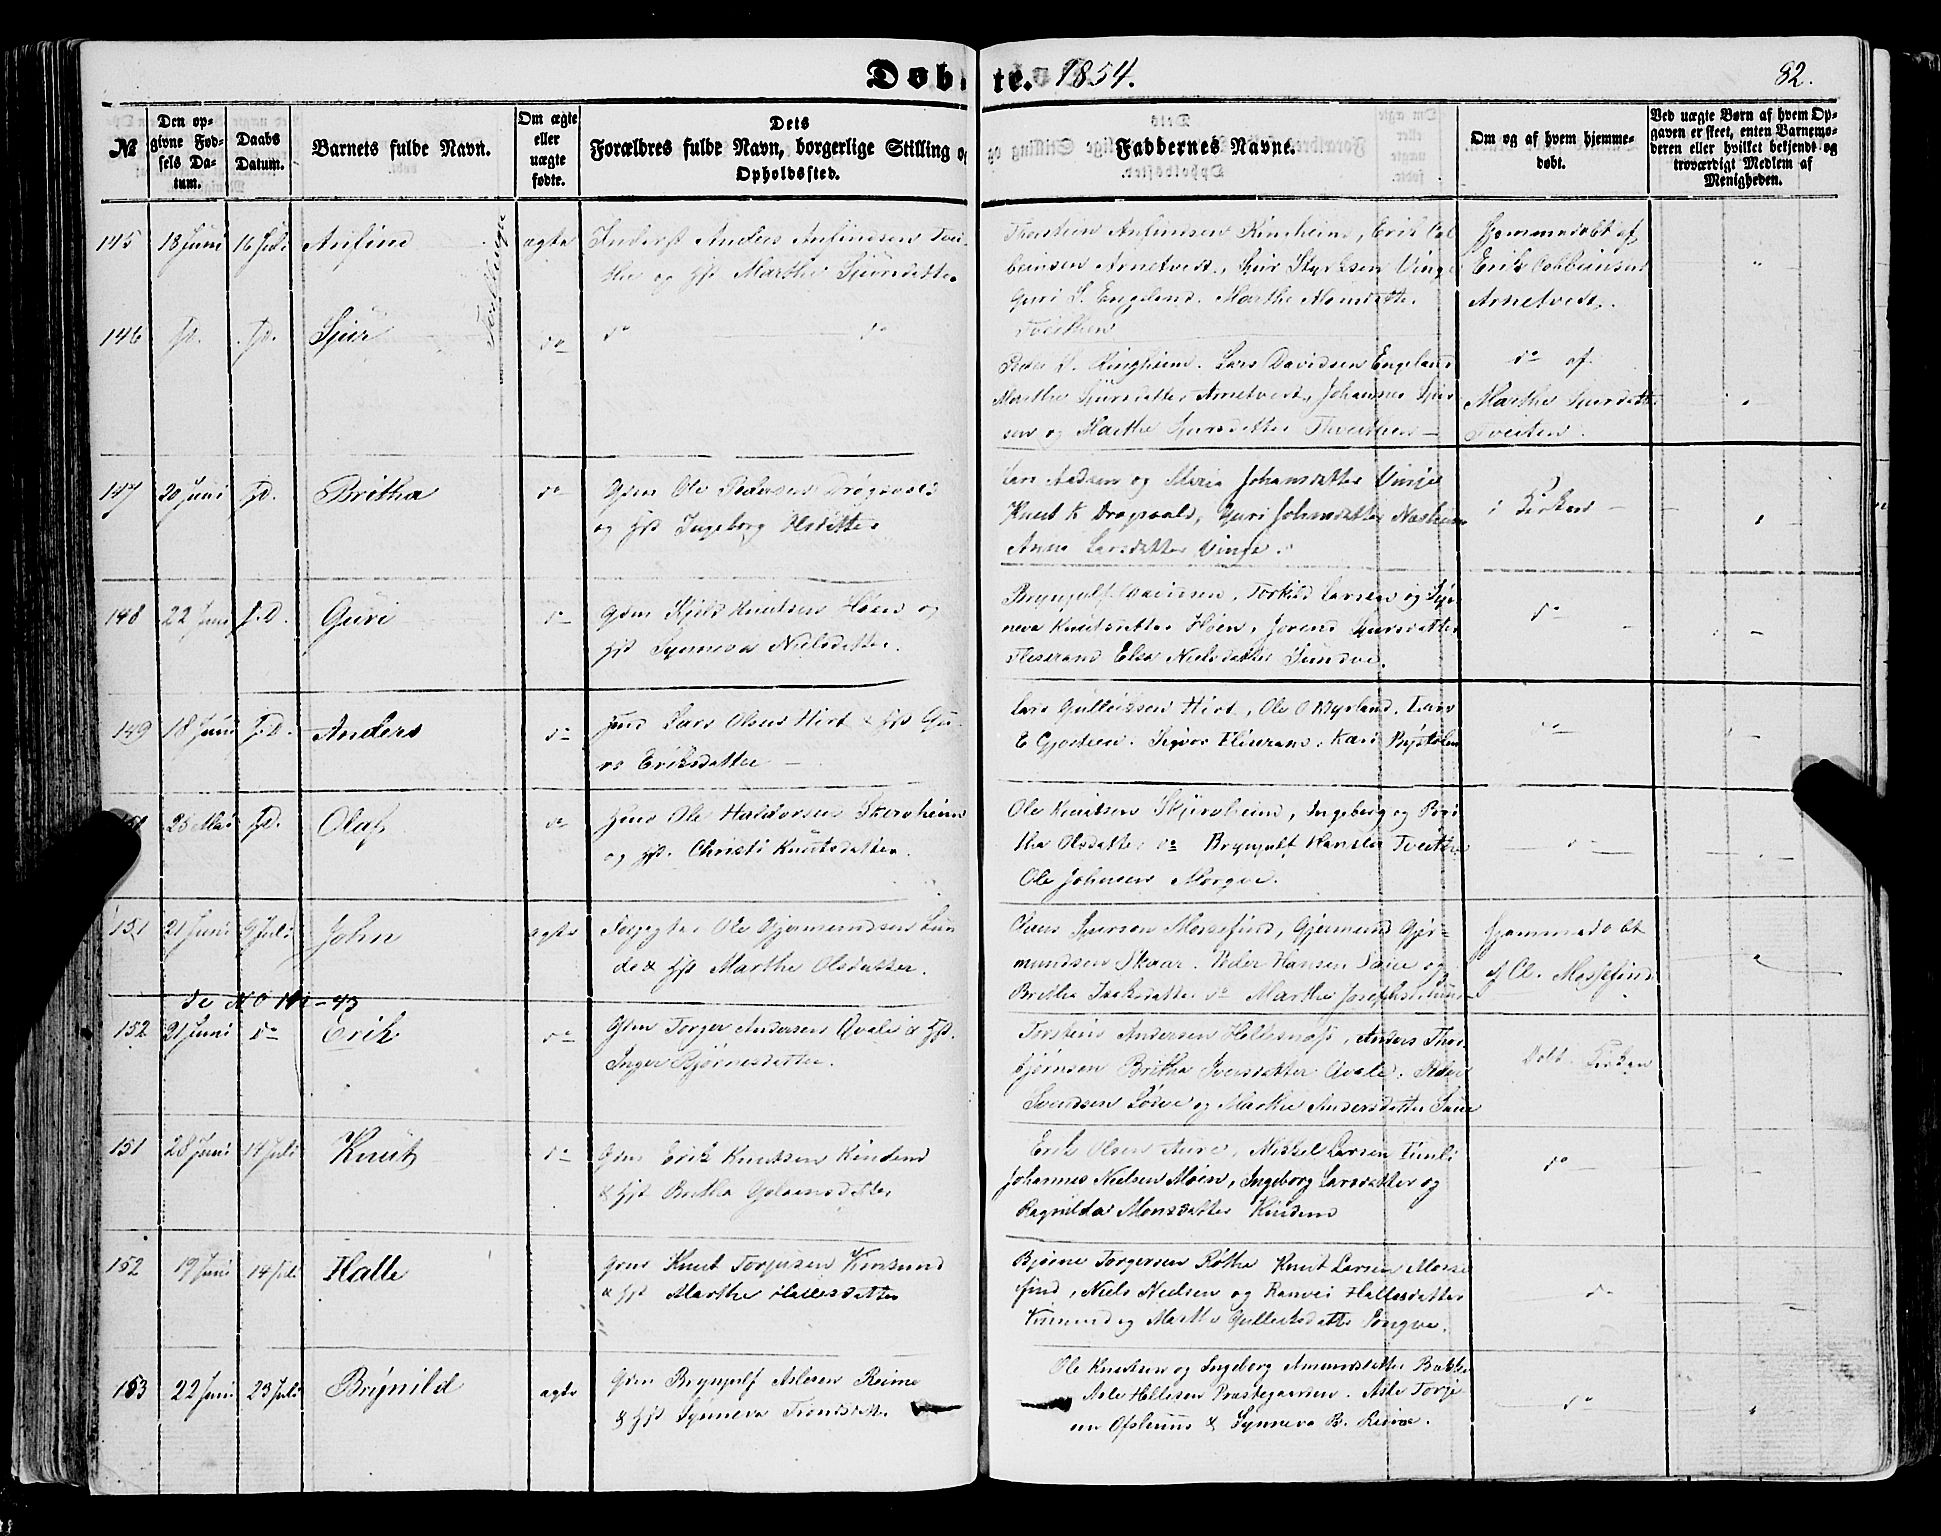 Døbte. 1854.
82.
№
Den opgivne Fødsels Datum.
Daabs Datum.
Barnets fulde Navn.
Om ægte eller uægte fødte.
Dets Forældres fulde Navn, borgerlige Stilling og Opholdssted.
Faddernes Navne.
Om og af hvem hjemmedøbt.
Ved uægte Børn af hvem Opgaven er skeet, enten Barnemoderen eller hvilket bekjendt og troværdigt Medlem af Menigheden.
145 18 Juni 16 Juli Anfind ægte Inderst Anders Anfindsen Tvei-
then og Hst Marthe Sjursdatter
Thorstein Anfindsen Ringheim, Erik Col-
beinsen Arnetvedt, Sjur Styrksen Vinge
Guri L. Engeland. Marthe Monsdatter
Tveithen
Hjemmedøbt af
Erik Colbeinsen
Arnetvedt.
Tvillinge
146 J.D. J.D. Sjur do do do
Peder L. Ringheim. Lars Davidsen Engeland
Marthe Sjursdatter Arnetvedt, Johannes Sjur-
sen og Marthe Sjursdatter Thveithen
do af
Marthe Sjursdatter
Tveiten.
147 20 Juni J.D. Britha do Gdm Ole Pedersen Drøgsvold
og Hst Ingeborg Olsdatter
Lars Andsen og Maria Johansdatter Vinje
Knut K Dragsvold, Guri Johansdatter Næsheim
Anna Larsdatter Vinje.
i Kirken
148 22 Juni J.D. Guri do Gdm Kjeld Knutsen Høen og
Hst Synneva Nielsdatter.
Brynjulf Torkild Larsen og Syn-
neva Knutsdatter Høen, Sjursdatter
Fliserand Elsa Nielsdatter Sundve.
do
149 18 Juni J.D. Anders do Lars Olsen Hirt & Hst Gu-
ro Eriksdatter
Lars Gulleiksen Hirt, Ole O Nyrland. Lars
E Gjostein. Sigvor Fliserand. Kari Bystølen
do
25 Mai J.D. Olaf do Ole Haldorsen Skersheim
og Hst. Christi Knutsdatter.
Ole Knutsen Skjersheim, Ingeborg og Bri-
tha Olsdatter do Brynjulf Hansen Tveithe
Ole Johnsen Mørgve.
151 21 Juni 9 Juli John ægte Ole Gjermundsen Lun
de & Hst Marthe Olsdatter.
Claus Sjursen Mossefind, Gjermund Gjer-
mundsen Skaar. Peder Hansen Saue og
Britha Isaksdatter do Marthe Josephsdatter
Hjemmedøbt
af Cl. Mossefind
se No 142-43
152 21 Juni do Erik do Gdm Torger Andersen Qvale & Hst.
Inger Bjørnesdatter.
Torstein Andersen Hellesnæs, Anders Thor-
bjørnsen Britha Iversdatter Qvale. Peder
Svendsen Løove og Marthe Andersdatter Saue
Døbt i Kirken
151 28 Juni 14 Juli Knut do Gdm Erik Knutsen Rindend
& Hst Britha
Erik Olsen Aure, Mikkel Larsen Finli
Johannes Nielsen Møen, Ingeborg Larsdatter og
Ragnilda Monsdatter Rindend
do
152 19 Juni 14 Juli Halle Gdm Knut Torjusen Vinsand
& Hst Marthe Hallesdatter
Bjørne Torgersen Røthe Knut Larsen Mosse-
find, Niels Nielsen og Ranvei Hallesdatter
og Marthe Gulleiksdatter Tøngve.
do
153 22 Juni 23 Juli Brynild ægte Gdm Brynjulf Aslesen Reime
& Hst Synneva Trondsdatter
Ole Knutsen og Ingeborg Amundsdatter Bakke
Asle Hellesen Præstegaarden. Asle Torje-
sen Ofsheims & Synneva B. Reime.
do